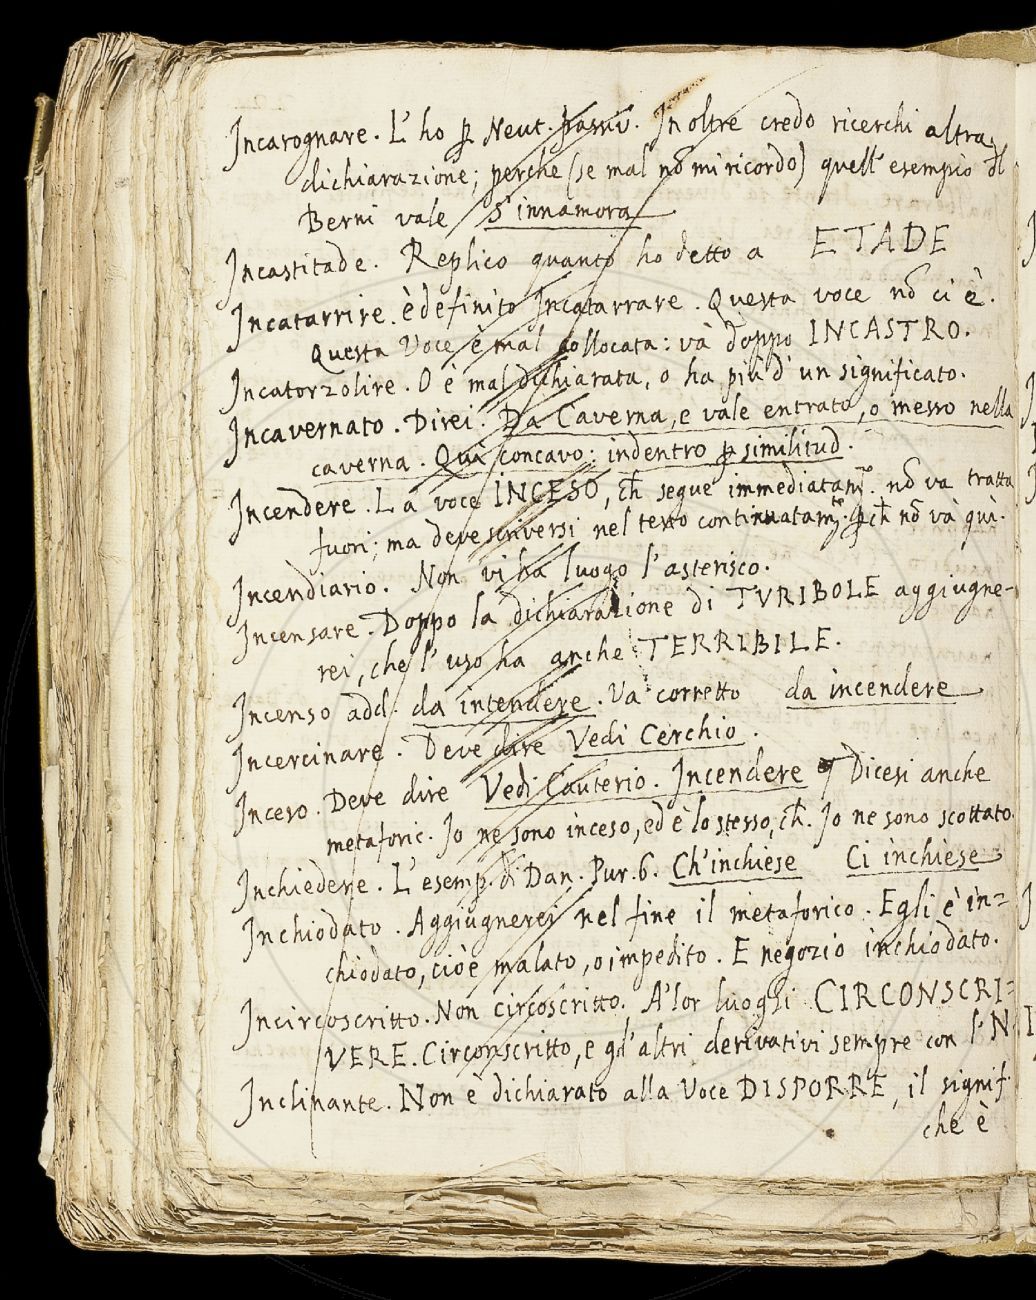 Incarognare. L'ho p Neut. passiv. Inoltre credo ricerchi altra
dichiarazione; perche (se mal nō mi ricordo) quell'esempio dl
Berni vale s'innamora
Incastitade. Replico quanto ho detto a ETADE
Incatarrire. è definito Incatarrare. Questa voce nō ci è.
Questa Voce è mal collocata: và doppo INCASTRO.
Incatorzolire. O è mal dichiarata, o ha più d'un significato.
Incavernato. Direi. Da Caverna, e vale entrato, o messo nella
caverna. Quì concavo: indentro p similitud.
Incendere. La voce INCESO, ch̄ segue immediatamte. nō va tratta
fuori; ma deve scriversi nel testo continuatamte. pch̄ nō và quì.
Incendiario. Non vi ha luogo l'asterisco.
Incensare. Doppo la dichiarazione di TVRIBOLE aggiugne-
rei, che l'uso ha anche TERRIBILE.
Incenso add. da intendere. Va corretto da incendere
Incercinare. Deve dire Vedi Cerchio.
Inceso. Deve dire Vedi Cauterio. Incendere Dicesi anche
metaforic. Io ne sono inceso, ed è lo stesso, ch̄. Io ne sono scottato.
Inchiedere. L'esemp. di Dan. Pur. 6. Ch'inchiese Ci inchiese
Inchiodato. Aggiugnerei nel fine il metaforico. Egli è in=
chiodato, cioè malato, o impedito. E negozio inchiodato.
Incircoscritto. Non circoscritto. A' lor luoghi CIRCONSCRI=
VERE. Circonscritto, e gl'altri derivativi sempre con l'N
Inclinante. Non è dichiarato alla Voce DISPORRE, il signif.
che è